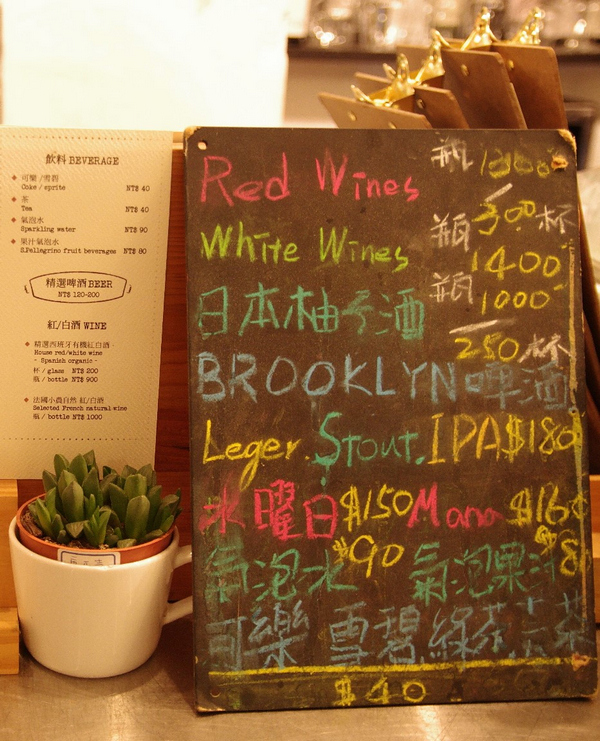 飲料 BEVERAGE
可樂/雪碧
Coke / sprite NT$ 40
茶
Tea NT$ 40
氣泡水
Sparkling water NT$ 90
果汁氣泡水
S.Pellegrino fruit beverages NT$ 80
精選啤酒 BEER
NT$ 120-200
紅/白酒 WINE
精選西班牙有機紅白酒
House red/white wine
- Spanish organic -
杯 / glass NT$ 200
瓶 / bottle NT$ 900
法國小農自然 紅/白酒
Selected French natural wine
瓶 / bottle NT$ 1000
Red Wines 瓶
300 杯
White Wines 瓶 1400
日本柚子酒 瓶 1000
250 杯
BROOKLYN 啤酒
Leger. Stout. IPA $180
水曜日 $150 Mana $160
氣泡水 $90 氣泡果汁
可樂 雪碧 綠茶
$40